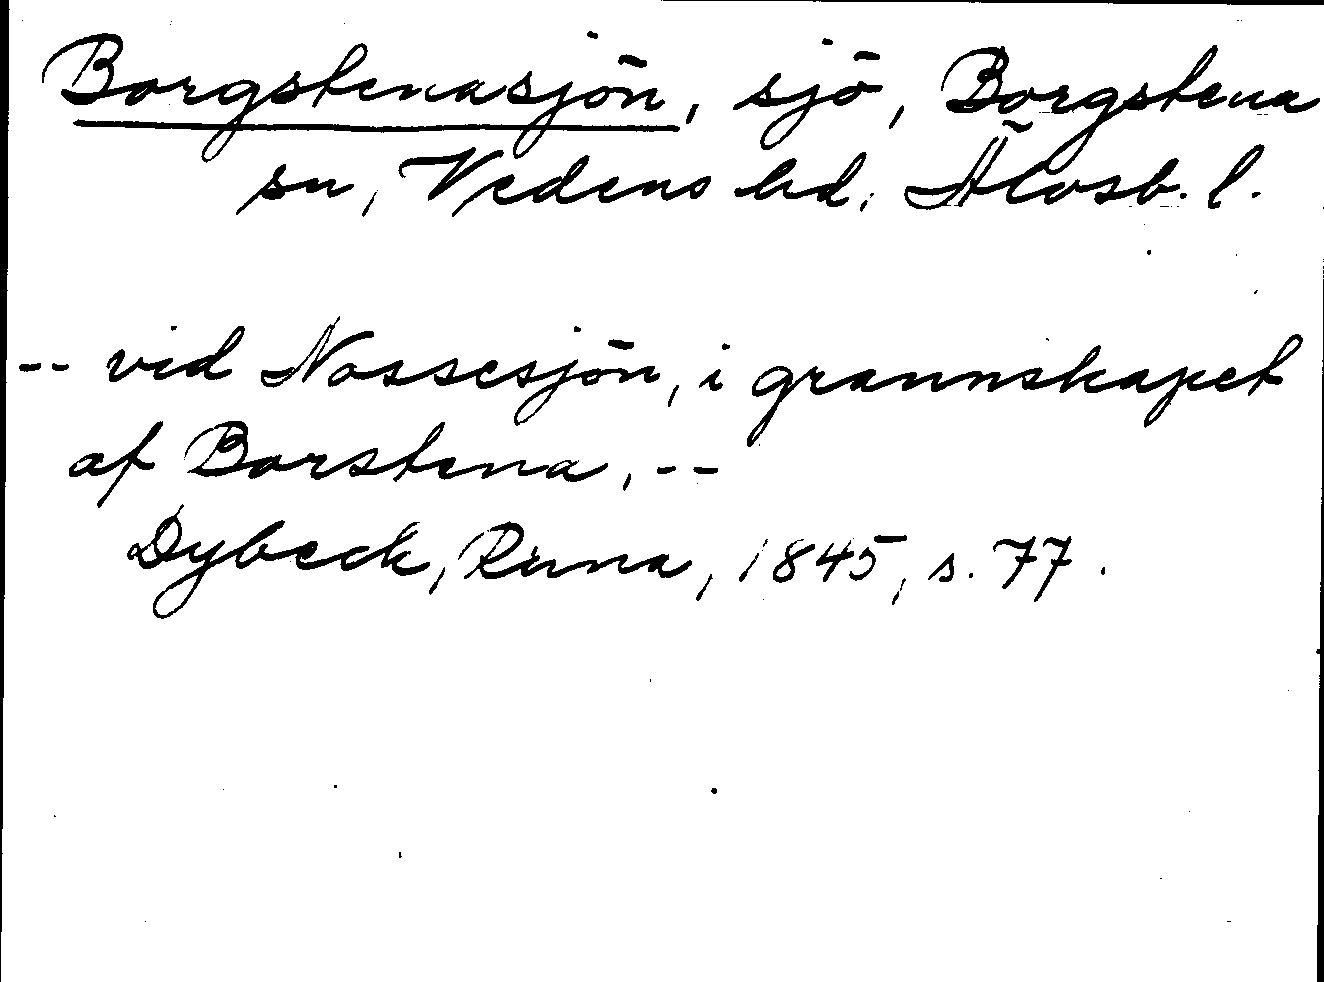 Borgstenasjön, sjö, Borgstena
sn, Vedens hd, Älvsb. l.
-- vid Nossesjön, i grannskapet
af Borstena, --
Dybeck, Runa, 1845, s. 77.